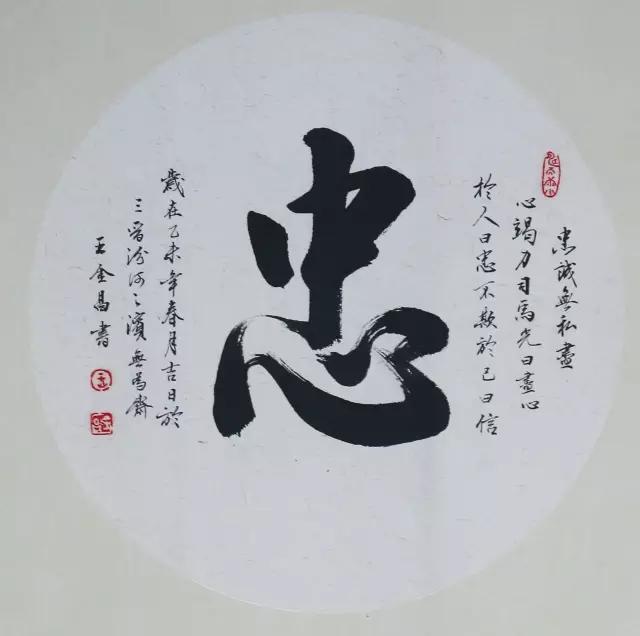 忠誠無私盡
心竭力司馬光曰盡心
於人曰忠不欺於己曰信
忠
歲在乙未年春月吉日於
三晉汾河之濱無為齋
王金昌書